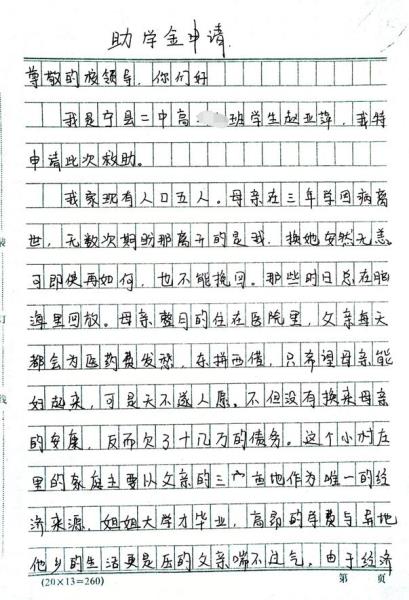 助学金申请
尊敬的校领导，你们好
我是宁县二中高 班学生赵亚萍，我特
申请此次救助。
我家现有人口五人。母亲在三年学因病离
世，无数次期盼那离开的是我，换她安然无恙
可即使再如何，也不能挽回。那些时日总在脑
海里回放。母亲整日的住在医院里，父亲每天
都会为医药费发愁，东拼西借，只希望母亲能
好起来，可是天不遂人愿。不但没有换来母亲
的安康，反而欠了十几万的债务。这个小村庄
里的家庭主要以父亲的三亩地作为唯一的经
济来源，姐姐大学才毕业，高昂的学费与异地
他乡的生活更是压的父亲喘不过气，由于经济
装
订
线
(20×13=260)
第 页